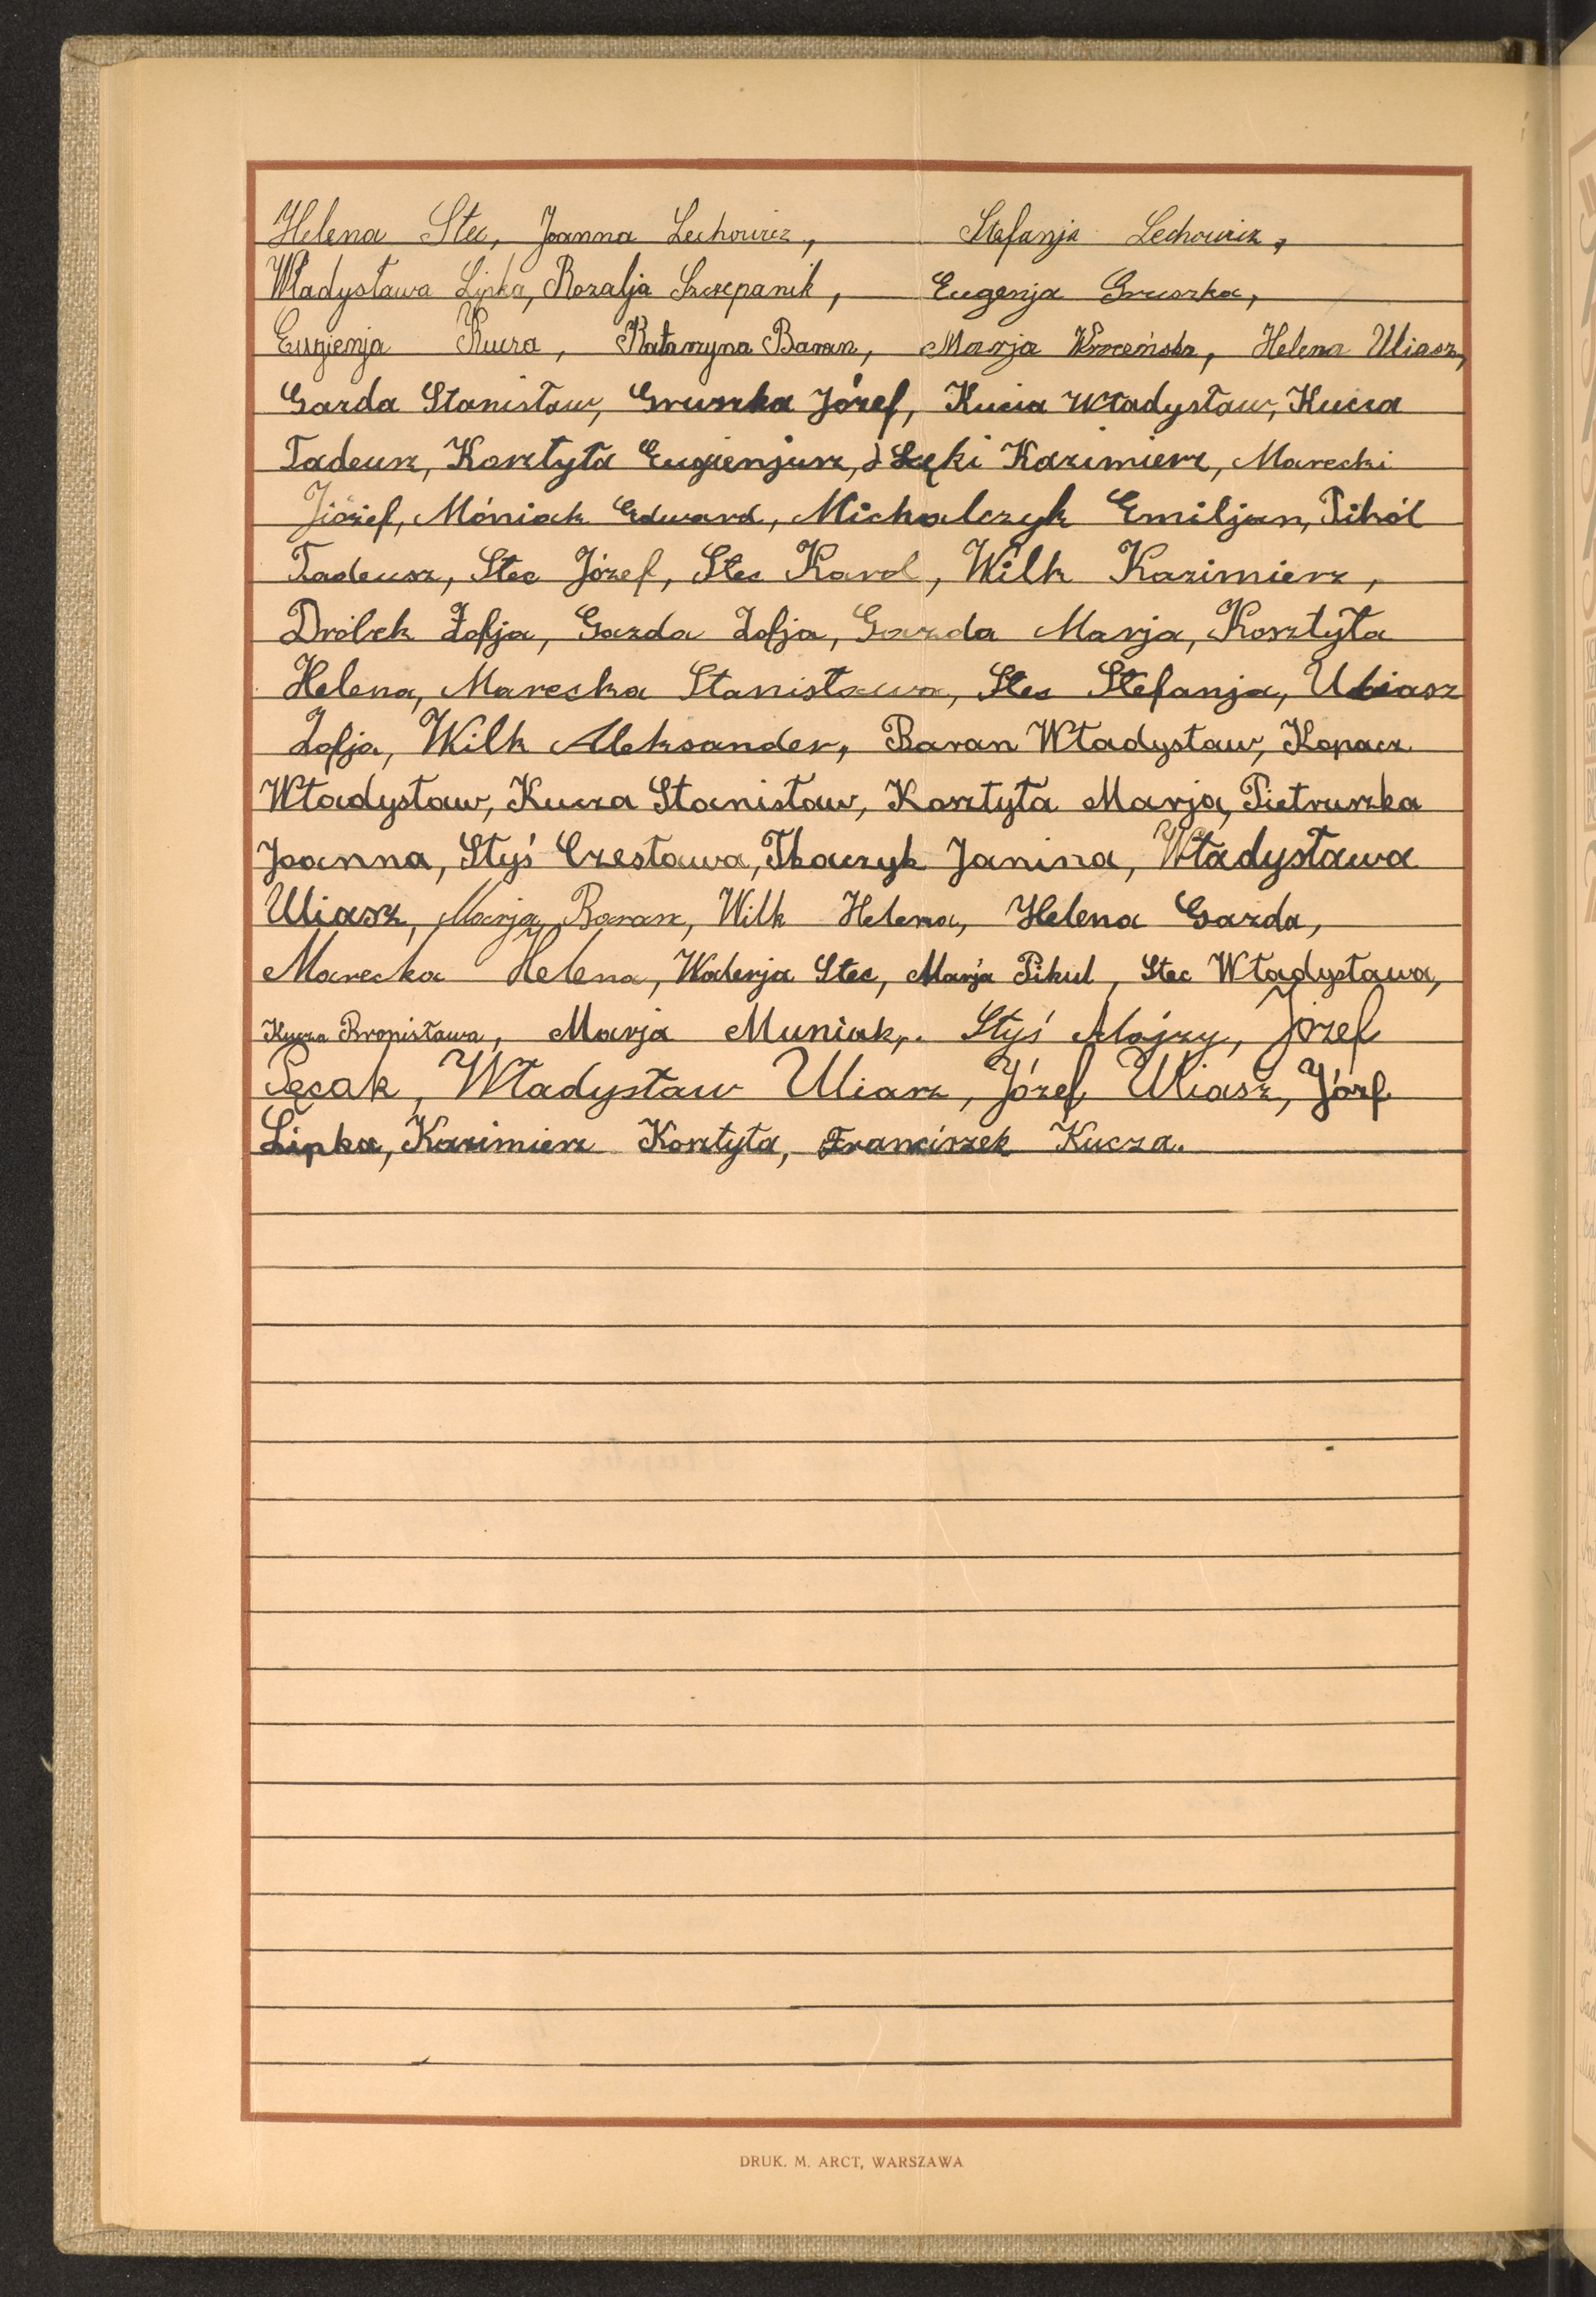 Helena Stec, Joanna Lechowicz, Stefanja Lechowicz,
Władysława Lipka, Rozalja Szczepanik, Eugenja Gruszka,
Eugienja Kucza, Katarzyna Baran, Marja Helena Uliasz,
Gazda Stanisław, Gruszka Józef, Kucza Władysław, Kucza
Tadeusz, Kosztyła Eugienjusz, Łęki Kazimierz, Marecki
Józief, Móniak Edward, Michalczyk Emiljan, Pikól
Tadeusz, Stec Józef, Stec Karol, Wilk Kazimierz,
Dróbek Zofja, Gazda Zofja, Gazda Marja, Kosztyła
Helena, Marecka Stanisława, Stec Stefanja, Uliasz
Zofja, Wilk Aleksander, Baran Władysław, Kopacz
Władysław, Kucza Stanisław, Kosztyła Marja, Pietruszka
Joanna, Styś Czesława, Tkaczyk Janina, Władysława
Uliasz, Marja Baran, Wilk Helena, Helena Gazda,
Marecka Helena, Walerja Stec, Marja Pikul, Stec Władysława,
Kucza Bronisława, Marja Muniak, Styś Alojzy, Józef
Pęcak, Władysław Uliasz, Józef Uliasz, Józf
Lipka, Kazimierz Kosztyła, Franciszek Kucza.
DRUK. M. ARCT, WARSZAWA